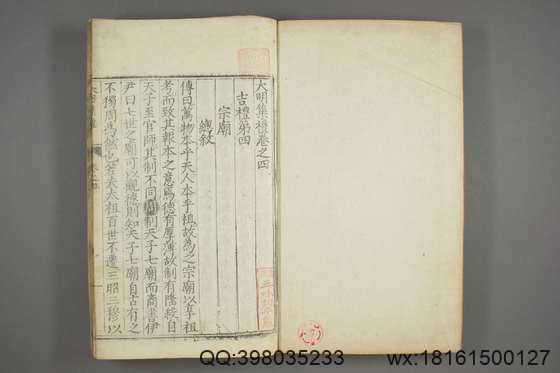 大明集禮卷之四
吉禮第四
宗廟
總敘
傳曰萬物本乎天人本乎祖故為之宗廟以享祖
考而致其報本之意焉德有厚薄故制有隆殺自
天子至官師其制不同周制天子七廟而商書伊
尹曰七世之廟可以觀德則知天子七廟自古有之
不獨周為然也若夫太祖百世不遷三昭三穆以
QQ:398035233
wx:18161500127